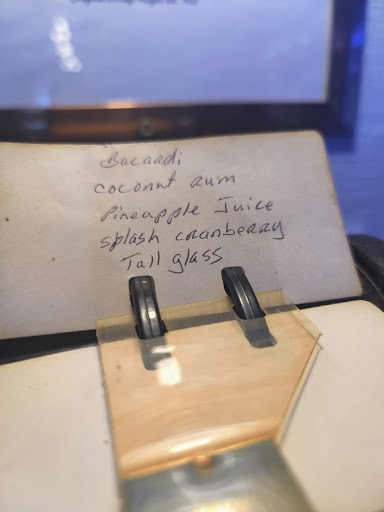 Bacardi
coconut rum
Pineapple Juice
splash cranberry
Tall glass